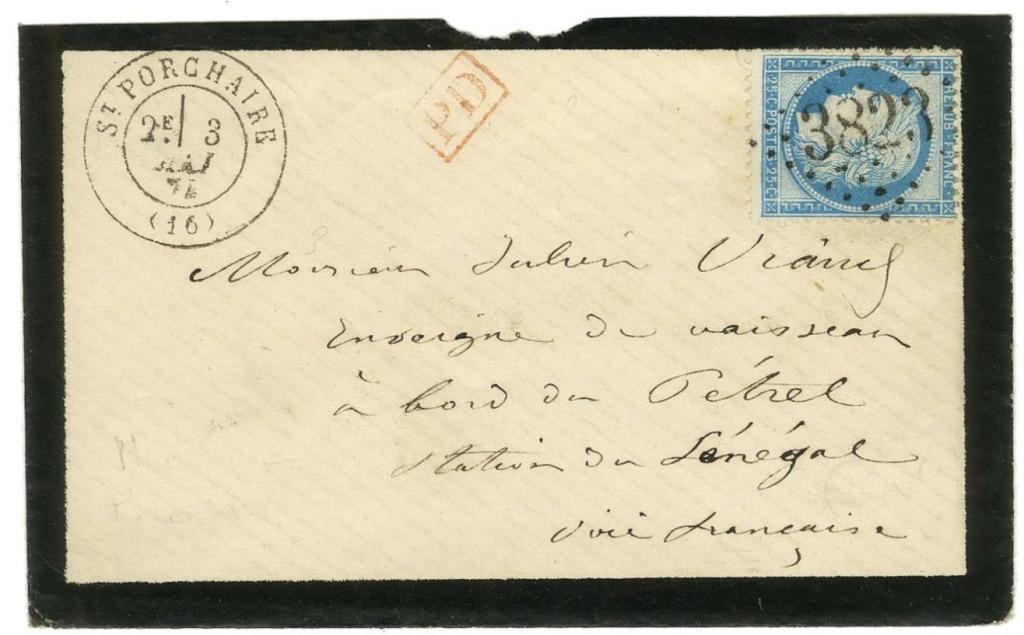 ST PORCHAIRE
2E 3
MAI
74
(16)
PD
REPUB. FRANC.
25 · C · POSTE · 25 · C
3823
Monsieur Julien
Enseigne de vaisseau
à bord du Pétrel
Station du Sénégal
Voie française